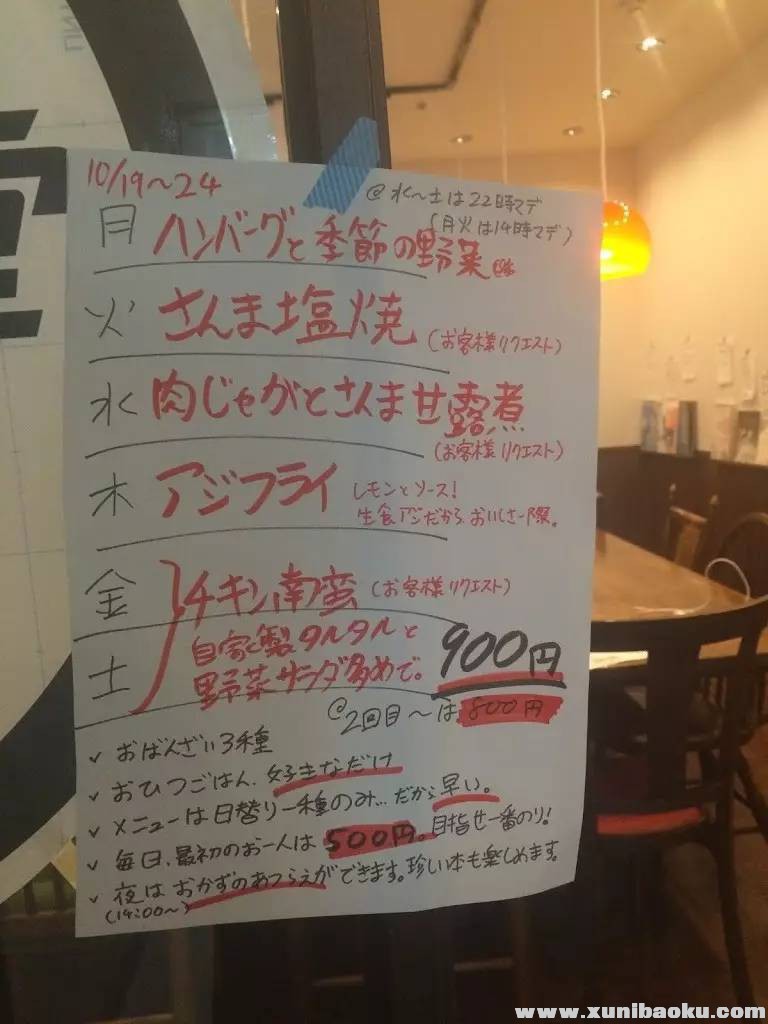 10/19〜24
@水〜土は22時マデ
(月火は14時マデ)
月 ハンバーグと季節の野菜
火 さんま塩焼 (お客様リクエスト)
水 肉じゃがとさんま甘露煮
(お客様リクエスト)
木 アジフライ レモンとソース!
生食アジだから、おいしさ一際。
金 チキン南蛮 (お客様リクエスト)
土 自家製タルタルと
野菜サラダ多めで。
900円
@2回目〜は800円
✓ おばんざい3種
✓ おひつごはん、好きなだけ
✓ メニューは日替り一種のみ…だから早い。
✓ 毎日、最初のお一人は500円。目指せ一番のり!
✓ 夜はおかずのあつらえができます。珍い本も楽しめます。
(19:00〜)
www.xunibaoku.com